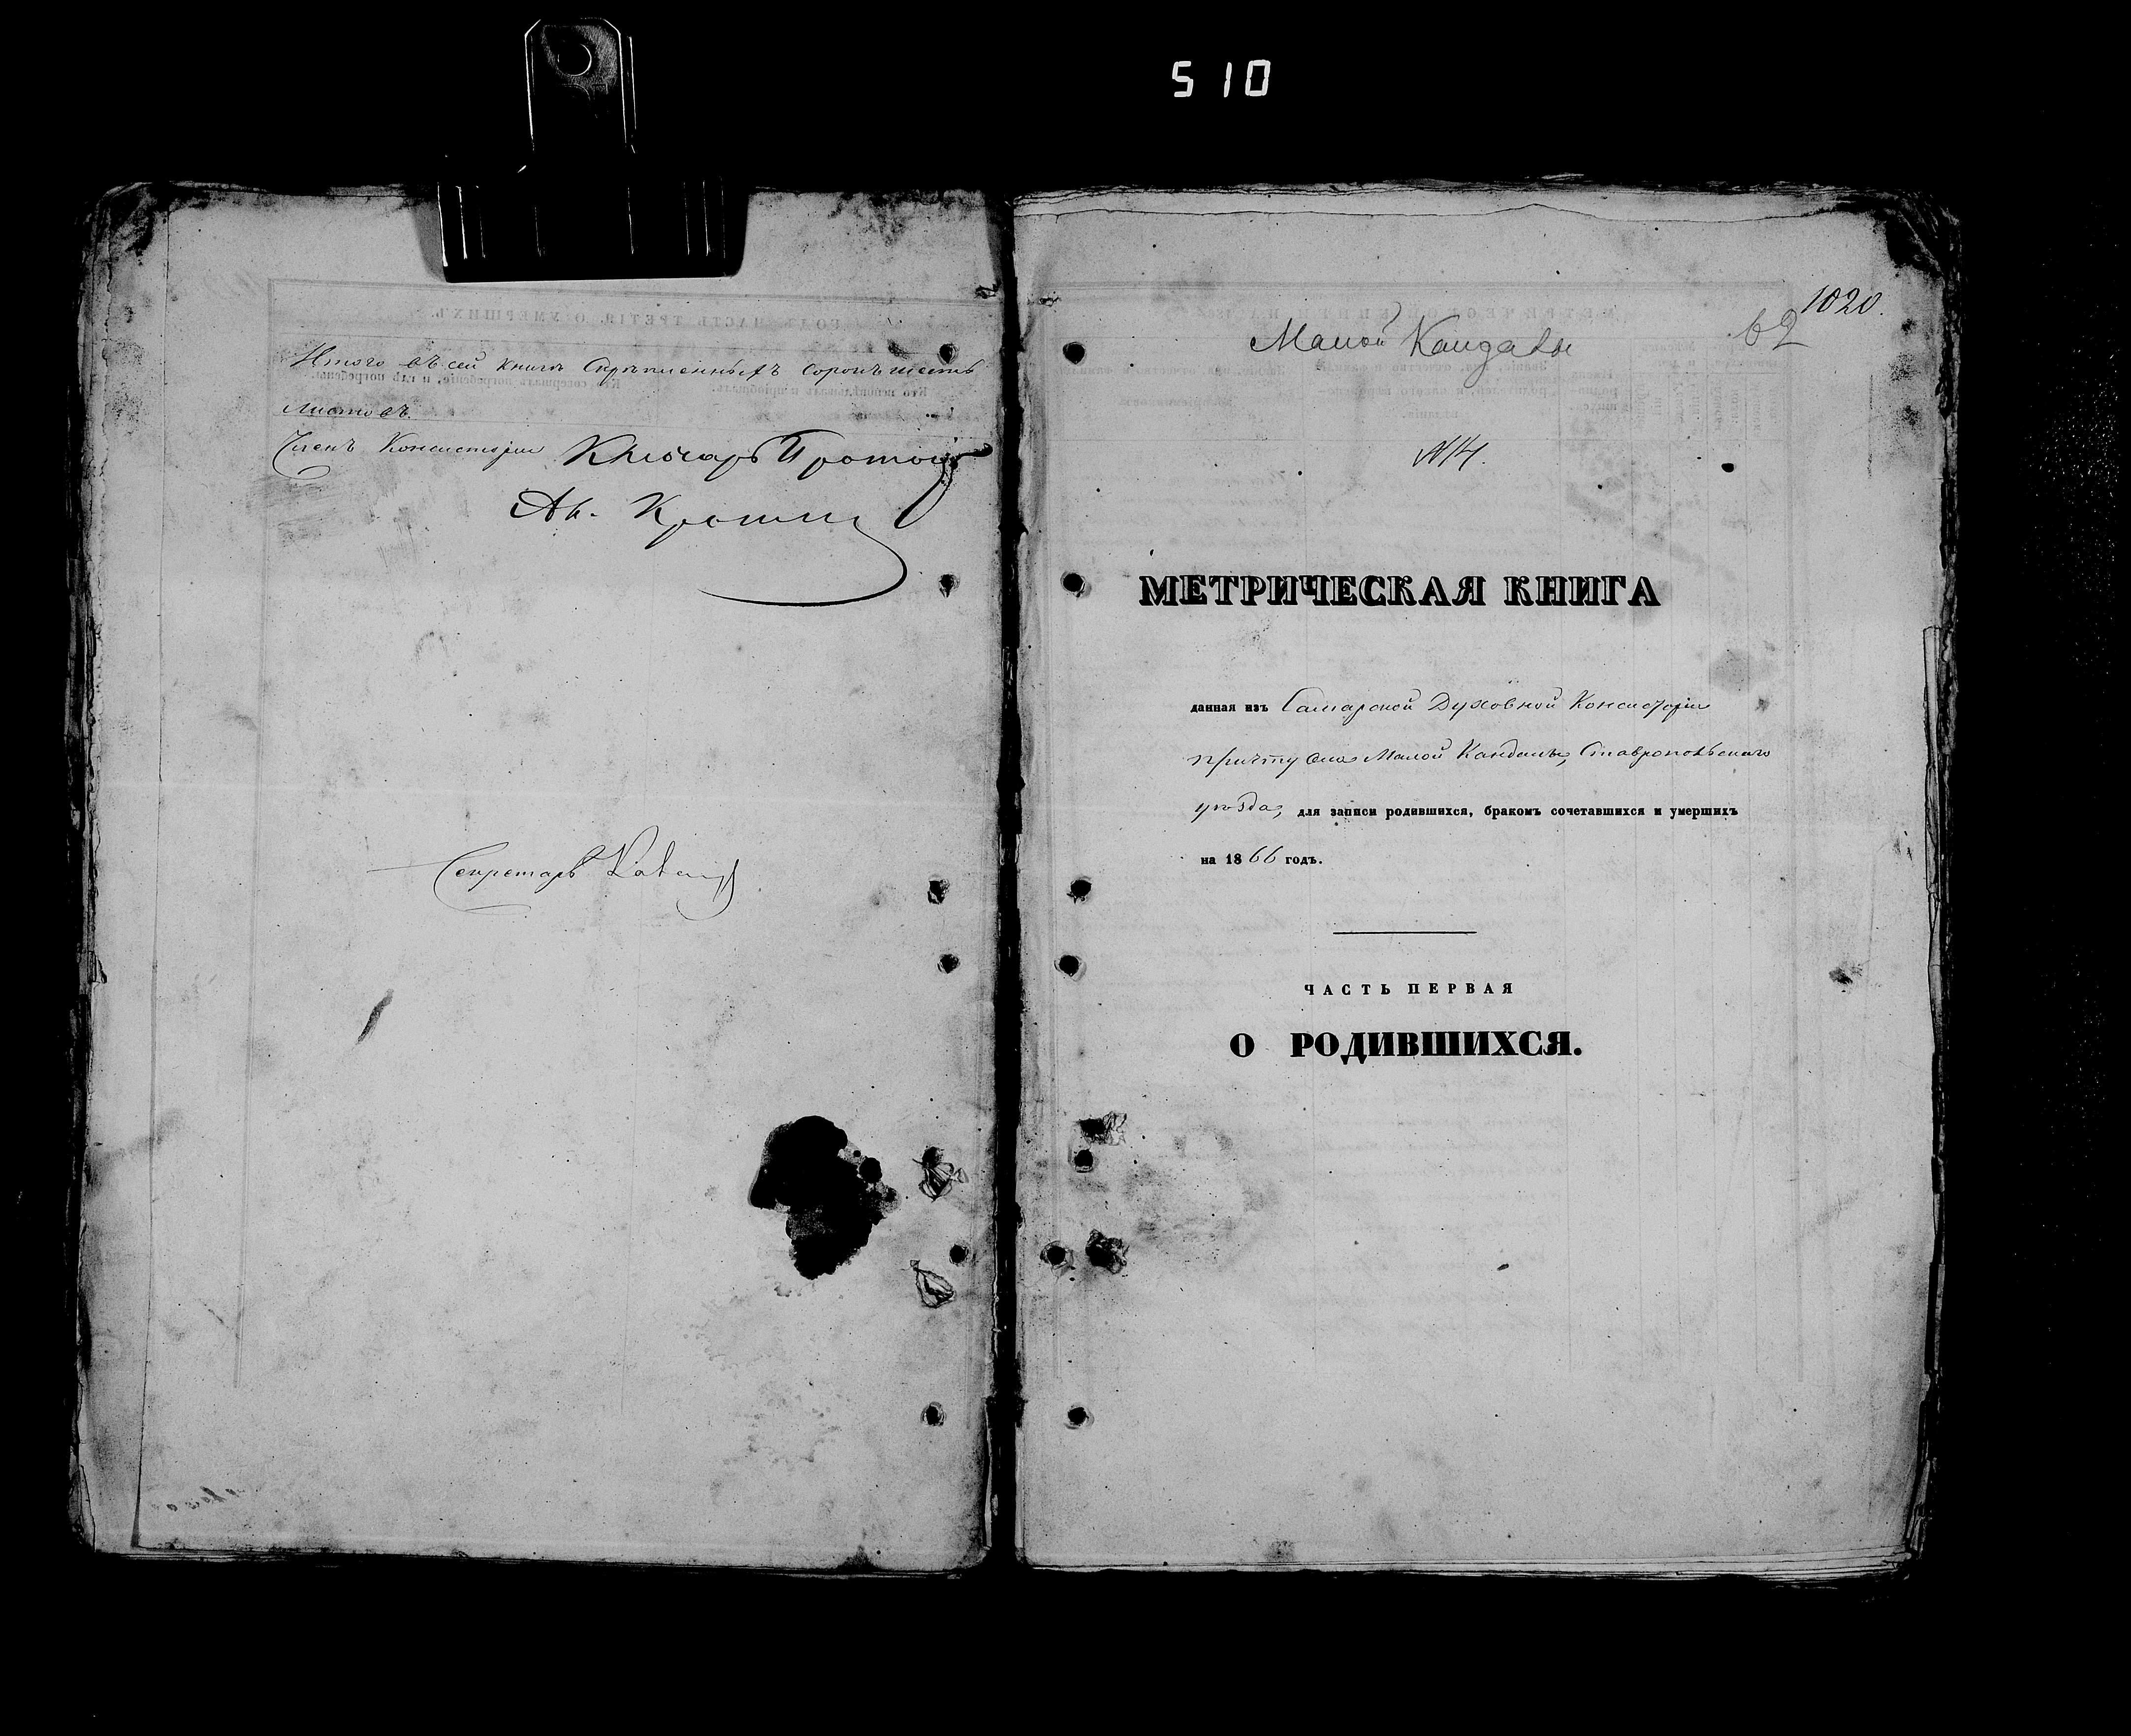 510
Итого въ сей книгѣ скрѣпленныхъ сорокъ шесть
листовъ.
Членъ Консисторіи Ключарь Протоіе
Ав.
Секретарь
1020.
62
Малой Кандалы
№ 14.
МЕТРИЧЕСКАЯ КНИГА
данная изъ Самарской Духовной Консисторіи
причту села Малой Кандалы, Ставропольскаго
уѣзда, для записи родившихся, бракомъ сочетавшихся и умершихъ
на 1866 годъ.
ЧАСТЬ ПЕРВАЯ
О РОДИВШИХСЯ.